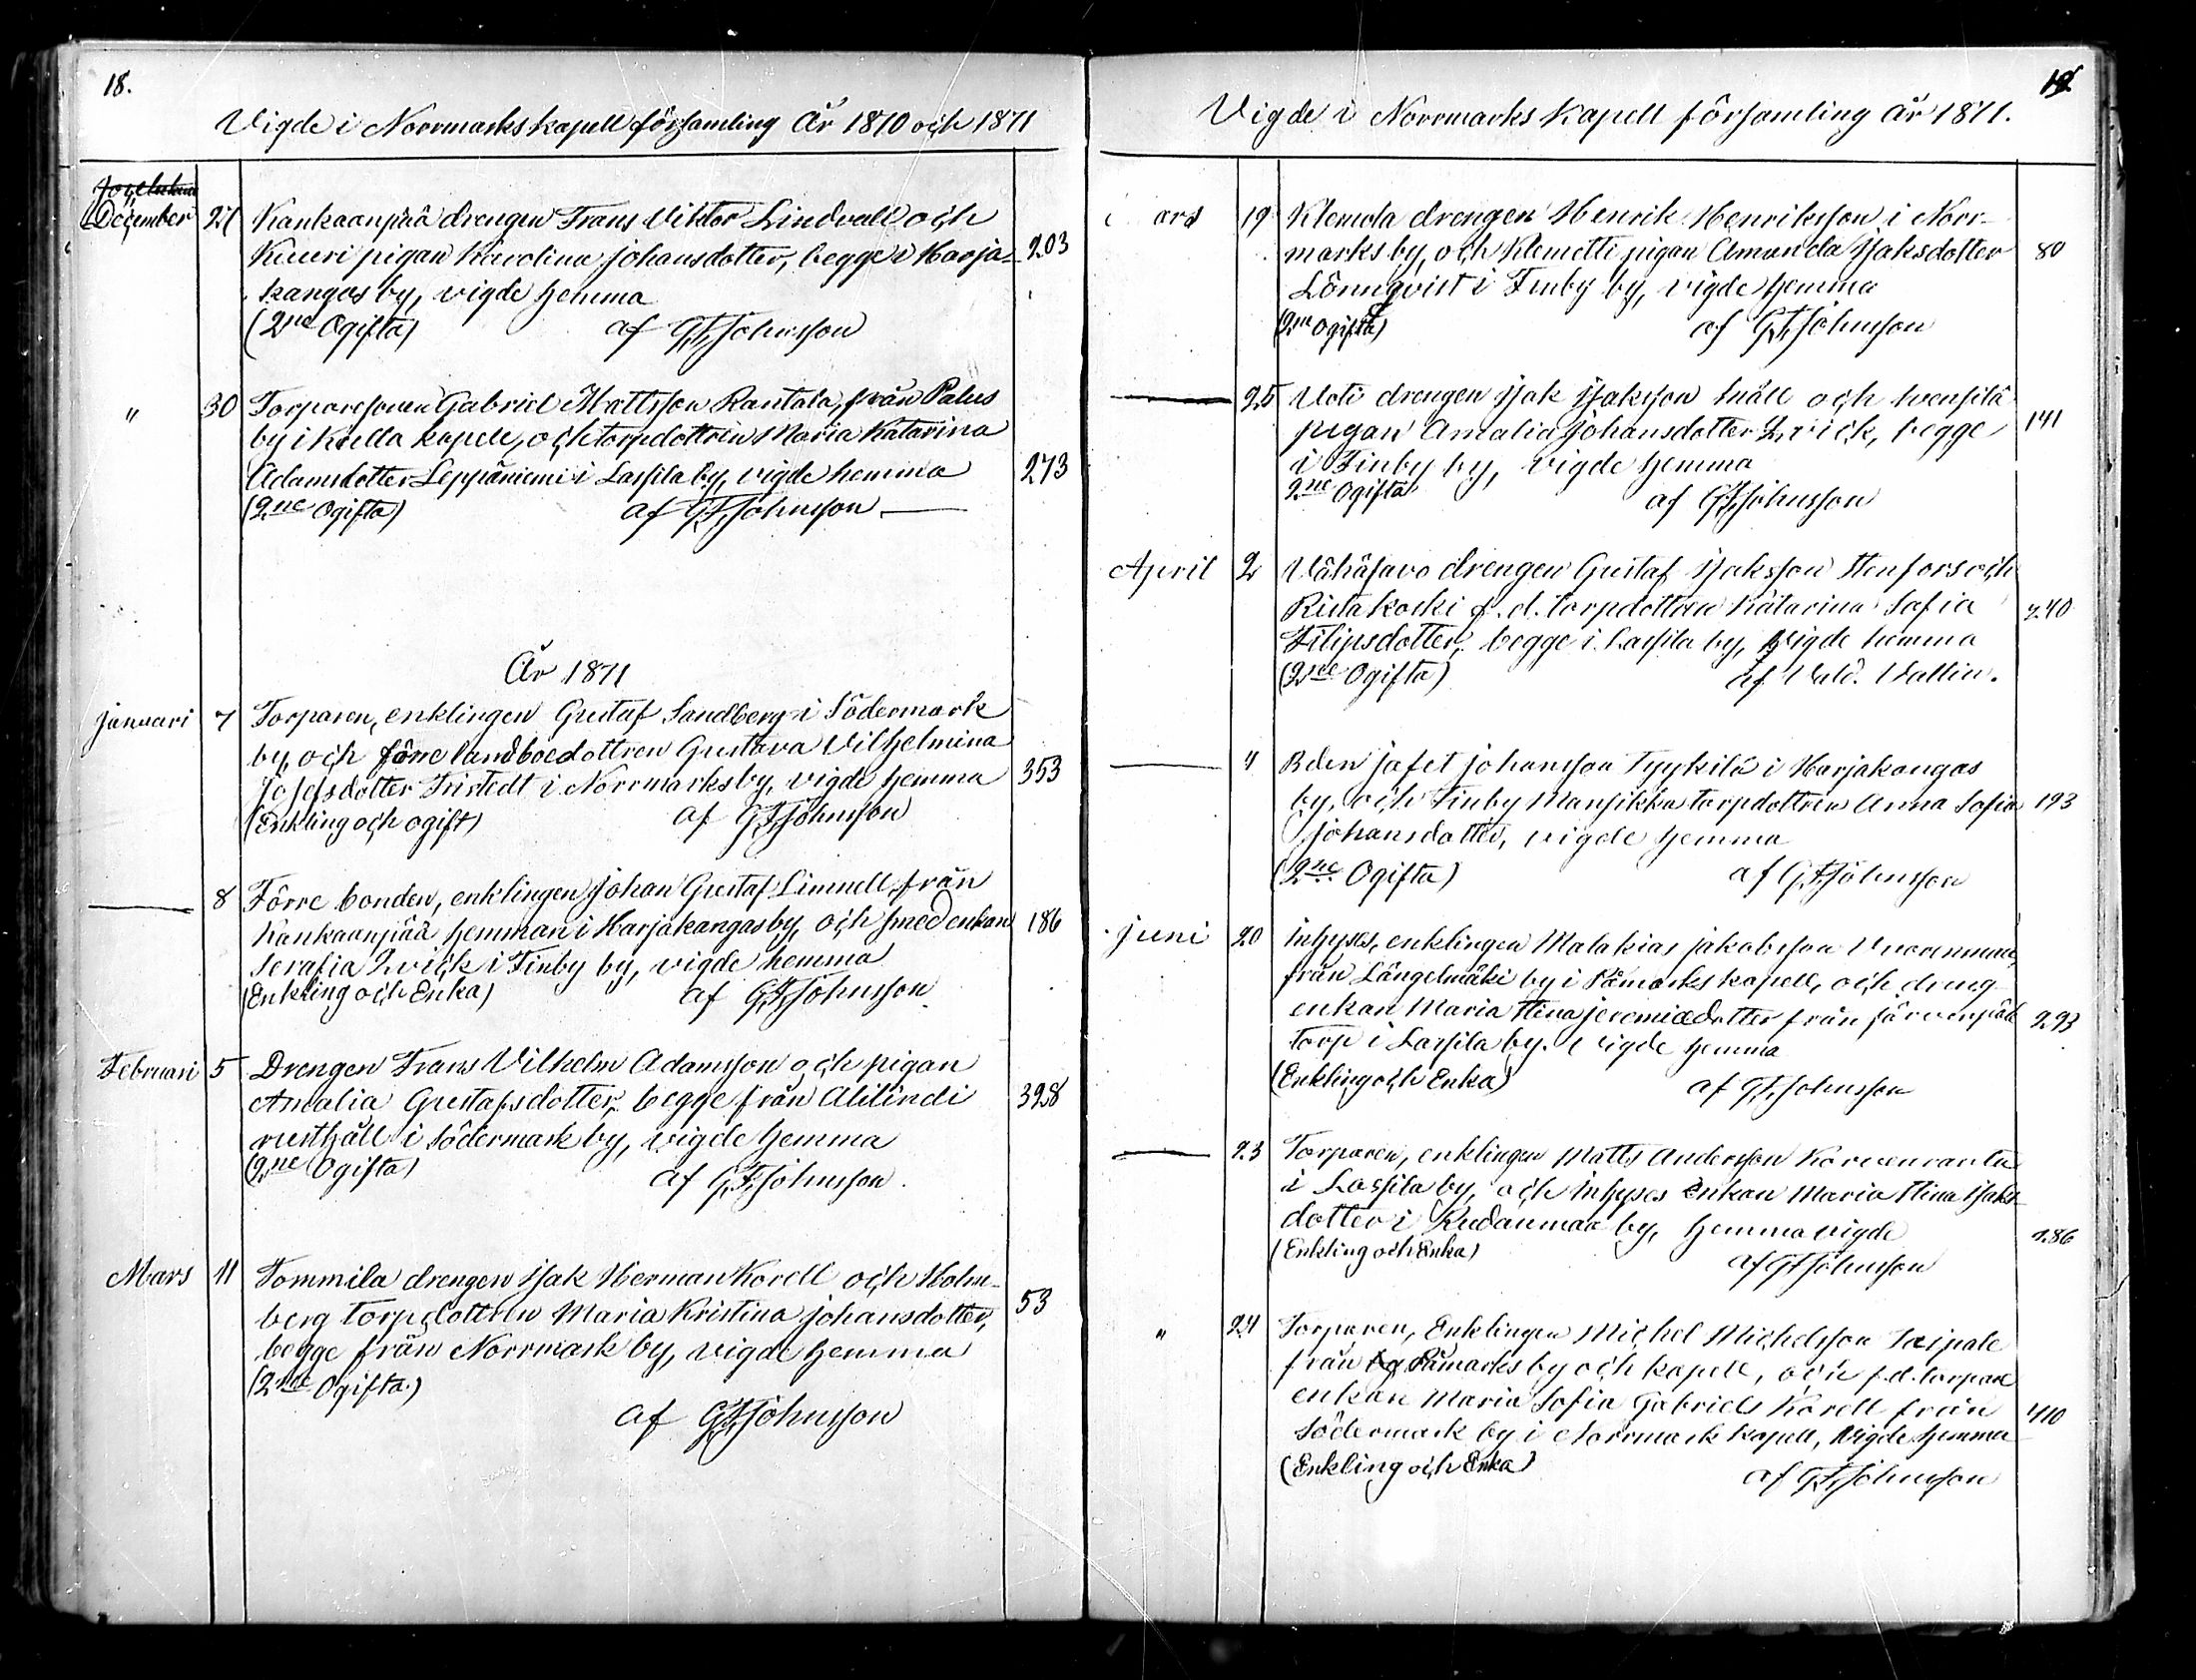 18.
Vigde i Norrmarks kapell församling År 1870 och 1871
December 27 Kankaanpää drengen Frans Viktor Lindvall och
Kuuri pigan Karolina Johansdotter, begge i Harja- 203
kangas by, vigde hemma
(2ne Ogifta) af G.F. Johnsson
" 30 Torparesonen Gabriel Mattsson Rantala, från Palus
by i Kulla kapell, och torpdottren Maria Katarina
Adamsdotter Leppäniemi i Lassila by, vigde hemma 273
(2ne Ogifta) af G.F. Johnsson
År 1871
Januari 7 Torparen, enklingen Gustaf Sandberg i Södermark
by, och förre landboedottren Gustava Vilhelmina
Josefsdotter Fristedt i Norrmarks by, vigde hemma 353
(Enkling och ogift) af G.F. Johnsson
8 Förre bonden, enklingen Johan Gustaf Linnell från
Kankaanpää hemman i Harjakangas by, och smedenkan 186
Serafia Qvick i Finby by, vigde hemma
(Enkling och Enka) af G.F. Johnsson
Februari 5 Drengen Frans Vilhelm Adamsson och pigan
Amalia Gustafsdotter, begge från Alilindi 398
rusthåll i Södermark by, vigde hemma
(2ne Ogifta) af G.F. Johnsson.
Mars 11 Tommila drengen Isak Herman Korell och Holm-
berg torpdottren Maria Kristina Johansdotter, 53
begge från Norrmark by, vigde hemma
(2ne Ogifta.)
af G.F. Johnsson
19
Vigde i Norrmarks Kapell församling år 1871.
ars 19 Klemola drengen Henrik Henriksson i Norr-
marks by, och Klemetti pigan Amanda Isaksdotter 80
Lönnqvist i Finby by, vigde hemma
(2ne Ogifta) af G.F. Johnsson
25 Uoti drengen Isak Isaksson Snäll och
pigan Amalia Johansdotter Qvick, begge 141
i Finby by, vigde hemma
2ne Ogifta af G.F. Johnsson
April 2 Vähäsavo drengen Gustaf Isaksson Stenfors och
Ruskakoski f. d. torpdottren Katarina Sofia 240
Filipsdotter, begge i Lassila by, vigde hemma
(2ne Ogifta) af Vald. Vallin.
" Bden Jafet Johansson Tyykilä i Harjakangas
by, och Finby Mansikka torpdottren Anna Sofia 193
Johansdotter, vigde hemma
(2ne Ogifta) af G.F. Johnsson
Juni 20 Inhyses, enklingen Malakias Jakobsson
från Längelmäki by i Påmarks kapell, och dreng-
enkan Maria Stina Jeremiædotter från Järvenpää 293
torp i Lassila by. Vigde hemma
(Enkling och Enka) af G.F. Johnsson
23 Torparen, enklingen Matts Andersson Korvenranta
i Lassila by, och inhyses enkan Maria Stina Isaks-
dotter i Rudanmaa by, hemma vigde 286
(Enkling och Enka) af G.F. Johnsson
" 24 Torparen, Enklingen Michel Michelsson Taipale
från Påmarks by och kapell, och f.d. torpare
enkan Maria Sofia Gabriels Korell från 410
Södermark by i Norrmark kapell, Vigde hemma
(Enkling och Enka) af G.F. Johnsson